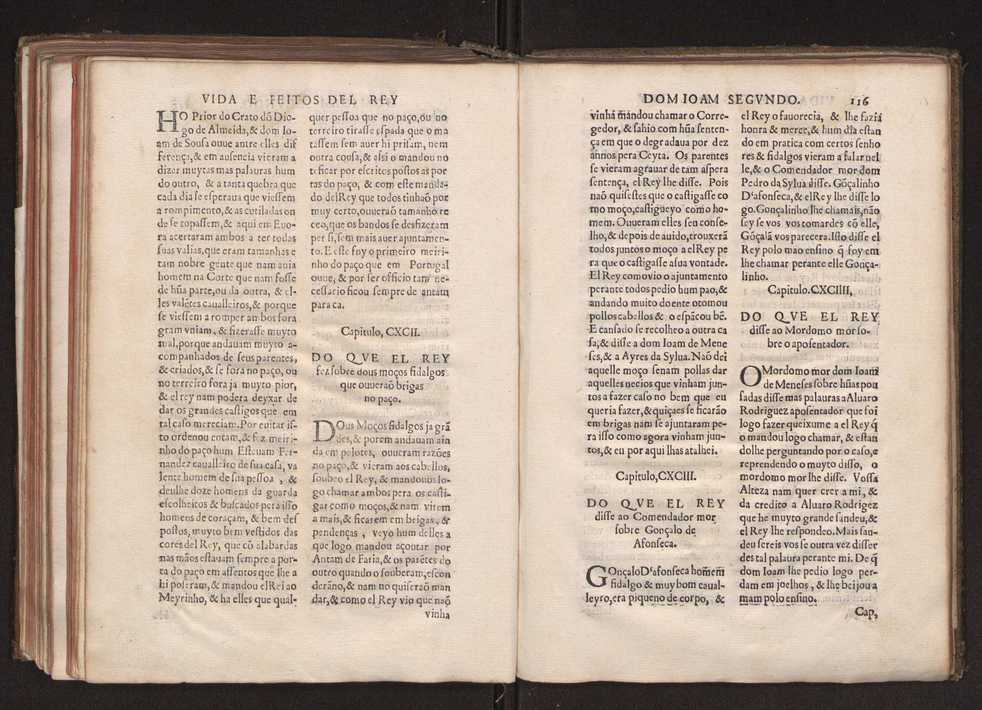 VIDA E FEITOS DEL REY
HO Prior do Crato dõ Dio-
go de Almeida, & dom Io-
am de Sousa ouue antre elles dif
ferença, & em ausencia vieram a
dizer muytas mas palauras hum
do outro, & a tanta quebra que
cada dia se esperaua que viessem
a rompimento, & as cutiladas on
de se topassem, & aqui em Euo-
ra acertaram ambos a ter todas
suas valias, que eram tamanhas e
tam nobre gente que nam auia
homem na Corte que nam fosse
de hũa parte, ou da outra, & el-
les valẽtes caualleiros, & porque
se viessem a romper ambos fora
gram vniam, & fizerasse muyto
mal, porque andauam muyto a-
companhados de seus parentes,
& criados, & se fora no paço, ou
no terreiro fora ja muyto pior,
& el rey nam podera deyxar de
dar os grandes castigos que em
tal caso mereciam. Por euitar is-
to ordenou entam, & fez meiri-
nho do paço hum Esteuam Fer-
nandez caualleiro de sua casa, va
lente homem de sua pessoa, &
deulhe doze homens da guarda
escolheitos & buscados pera isso
homens de coraçam, & bem des
postos, muyto bem vestidos das
cores del Rey, que cõ alabardas
nas mãos estauam sempre a por-
ta do paço em assentos que lhe a
hi poseram, & mandou el Rei ao
Meyrinho, & ha elles que qual-
quer pessoa que no paço, ou no
terreiro tirasse espada que o ma
tassem sem auer hi prisam, nem
outra cousa, & assi o mandou no
tificar por escritos postos as por
tas do paço, & com este manda-
do del Rey que todos tinhaõ por
muy certo, ouueraõ tamanho re
ceo, que os bandos se desfizeram
per si, sem mais auer ajuntamen-
to. E este foy o primeiro meiri-
nho do paço que em Portugal
ouue, & por ser officio tam ne-
cessario ficou sempre de antam
para ca.
Capitulo, CXCII.
DO QVE EL REY
fez sobre dous moços fidalgos
que ouueraõ brigas
no paço.
DOus Moços fidalgos ja grã
des, & porem andauam ain
da em pelotes, ouueram razões
no paço, & vieram aos cabellos,
soubeo el Rey, & mandouos lo-
go chamar ambos pera os casti-
gar como moços, & nam virem
a mais, & ficarem em brigas, &
pendenças, veyo hum delles a
que logo mandou açoutar por
Antam de Faria, & os parẽtes do
outro quando o souberam, escon
derãno, & nam no quiseraõ man
dar, & como el Rey vio que naõ
vinha
DOM IOAM SEGVNDO. 116
vinha mandou chamar o Corre-
gedor, & sahio com hũa senten-
ça em que o degradaua por dez
annos pera Ceyta. Os parentes
se vieram agrauar de tam aspera
sentença, el Rey lhe disse. Pois
naõ quisestes que o castigasse co
mo moço, castigueyo como ho-
mem. Ouueram elles seu conse-
lho, & depois de auido, trouxerã
todos juntos o moço a el Rey pe
ra que o castigasse a sua vontade.
El Rey como vio o ajuntamento
perante todos pedio hum pao, &
andando muito doente o tomou
pollos cabellos & o espãcou bẽ.
E cansado se recolheo a outra ca
sa, & disse a dom Ioam de Mene
ses, & a Ayres da Sylua. Naõ dei
aquelle moço senam pollas dar
aquelles necios que vinham jun-
tos a fazer caso no bem que eu
queria fazer, & quiçaes se ficarão
em brigas nam se ajuntaram pe-
ra isso como agora vinham jun-
tos, & eu por aqui lhas atalhei.
Capitulo, CXCIII.
DO QVE EL REY
disse ao Comendador mor
sobre Gonçalo de
Afonseca.
GOnçalo D'afonseca homẽm
fidalgo & muy bom caual-
leyro, era piqueno de corpo, &
el Rey o fauorecia, & lhe fazia
honra & merce, & hum dia estan
do em pratica com certos senho
res & fidalgos vieram a falar nel
le, & o Comendador mor dom
Pedro da Sylua disse. Gõçalinho
D'afonseca, & el Rey lhe disse lo
go. Gonçalinho lhe chamais, não
sey se vos vos tomardes cõ elle,
Gõçalã vos parecera. Isto disse el
Rey polo mao ensino q̃ foy em
lhe chamar perante elle Gonça-
linho.
Capitulo. CXCIIII,
DO QVE EL REY
disse ao Mordomo mor so-
bre o aposentador.
O Mordomo mor dom Ioam
de Meneses sobre hũas pou
sadas disse mas palauras a Aluaro
Rodriguez aposentador que foi
logo fazer queixume a el Rey q̃
o mandou logo chamar, & estan
dolhe perguntando por o caso, e
reprendendo o muyto disso, o
mordomo mor lhe disse. Vossa
Alteza nam quer crer a mi, &
da credito a Aluaro Rodrigez
que he muyto grande sandeu, &
el Rey lhe respondeo. Mais san-
deu sereis vos se outra vez disser
des tal palaura perante mi. De q̃
dom Ioam lhe pedio logo per-
dam em joelhos, & lhe beijou a
mam polo ensino.
Cap,